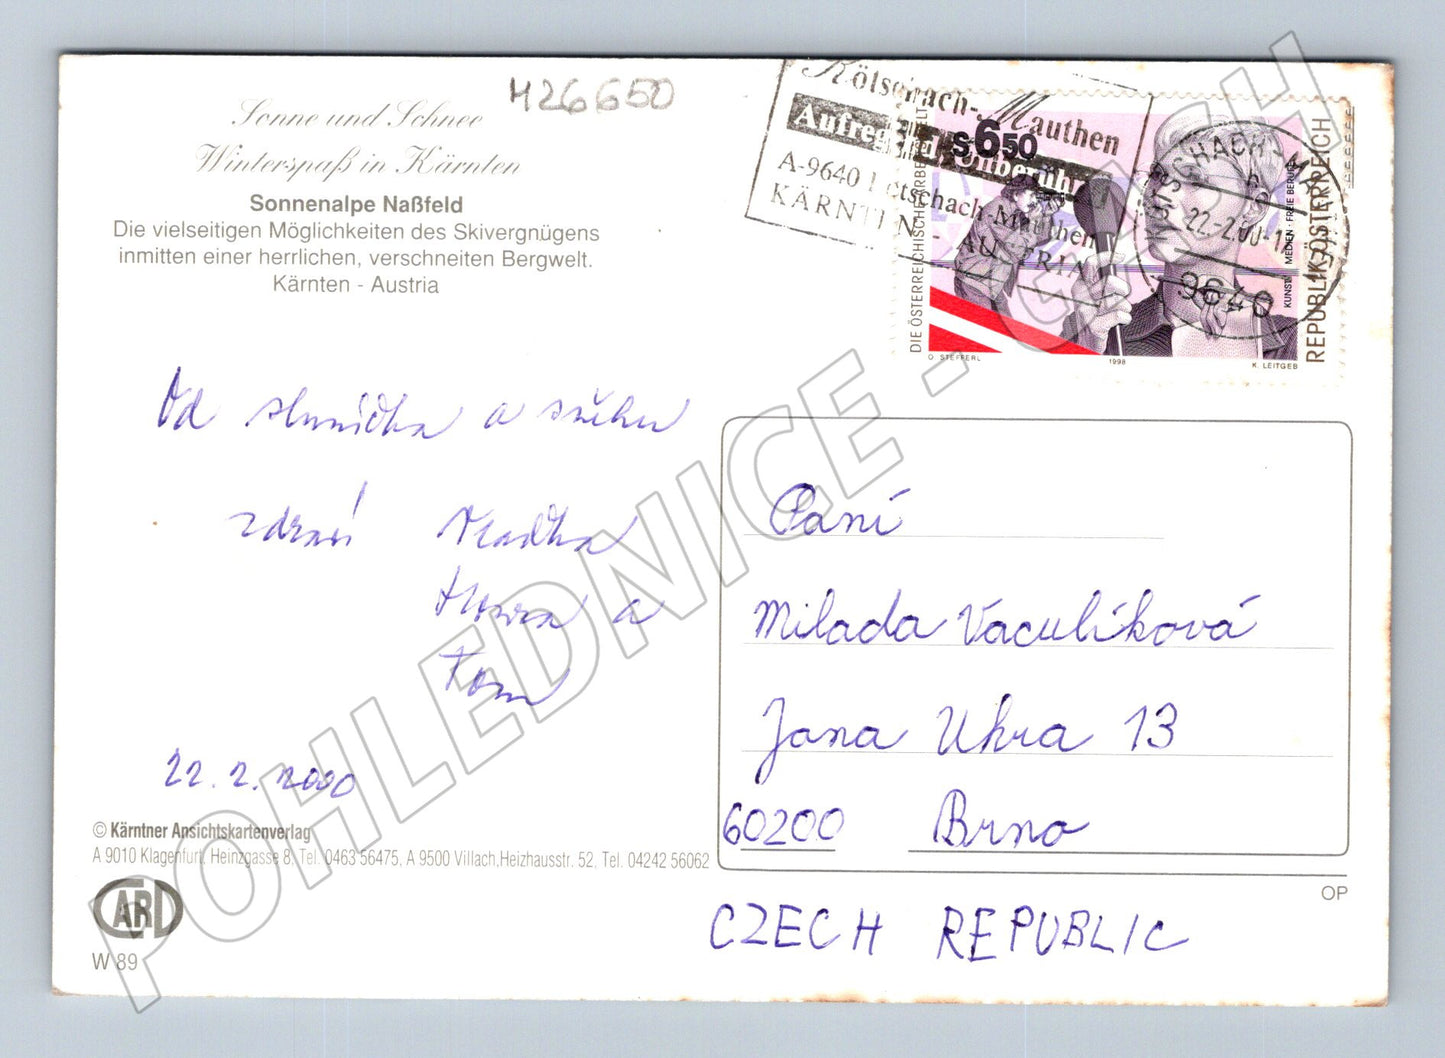 H26650
Sonne und Schnee
Winterspaß in Kärnten
Sonnenalpe Naßfeld
Die vielseitigen Möglichkeiten des Skivergnügens
inmitten einer herrlichen, verschneiten Bergwelt.
Kärnten - Austria
Kötschach-Mauthen
A-9640 Kötschach-Mauthen
KÄRNTEN - AUSTRIA
KÖTSCHACH-MAUTHEN
22.2.00-17
9640
S 650
DIE ÖSTERREICHISCHE ARBEITSWELT
KUNST · MEDIEN · FREIE BERUFE
REPUBLIK ÖSTERREICH
O. STEFFERL 1998 K. LEITGEB
Od sluníčka a sněhu
zdraví Vlaďka
a
Tom
22. 2. 2000
Paní
Milada Vaculíková
Jana Uhra 13
60200 Brno
CZECH REPUBLIC
© Kärntner Ansichtskartenverlag
A 9010 Klagenfurt, Heinzgasse 8, Tel. 0463 56475, A 9500 Villach, Heizhausstr. 52, Tel. 04242 56062
CARD
W 89
OP
POHLEDNICE - CZECH